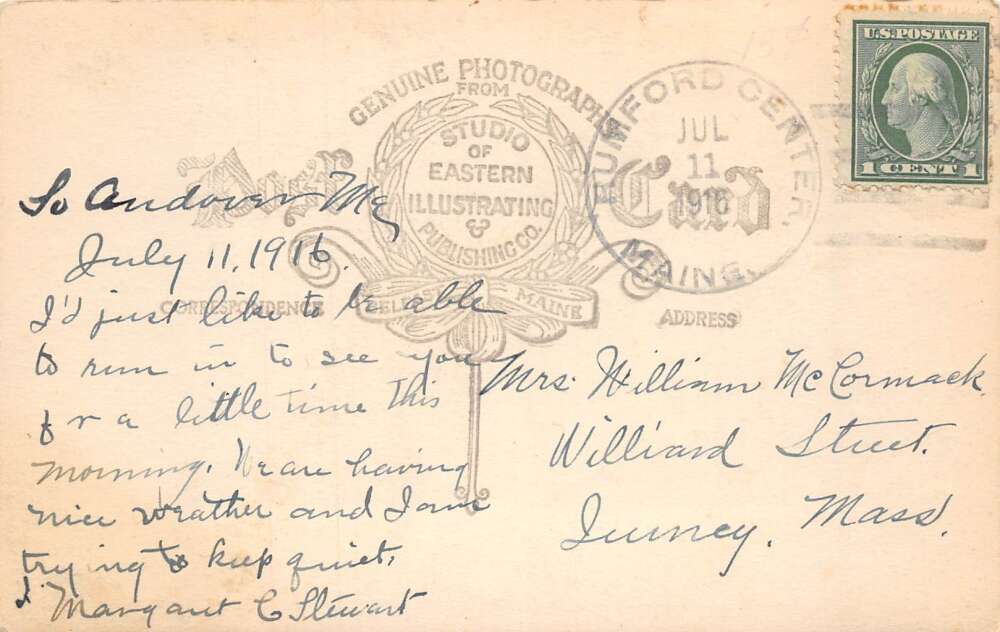 U.S. POSTAGE
1 CENT 1
RUMFORD CENTER,
JUL
11
1916
MAINE.
GENUINE PHOTOGRAPH
FROM
STUDIO
OF
EASTERN
ILLUSTRATING
&
PUBLISHING CO.
BELFAST MAINE
Post Card
CORRESPONDENCE
ADDRESS
So Andover Me
July 11, 1916.
I'd just like to be able
to run in to see you
for a little time this
morning. We are having
nice weather and I am
trying to keep quiet.
Margaret C Stewart
Mrs. William McCormack
Williard Street.
Quincy, Mass.